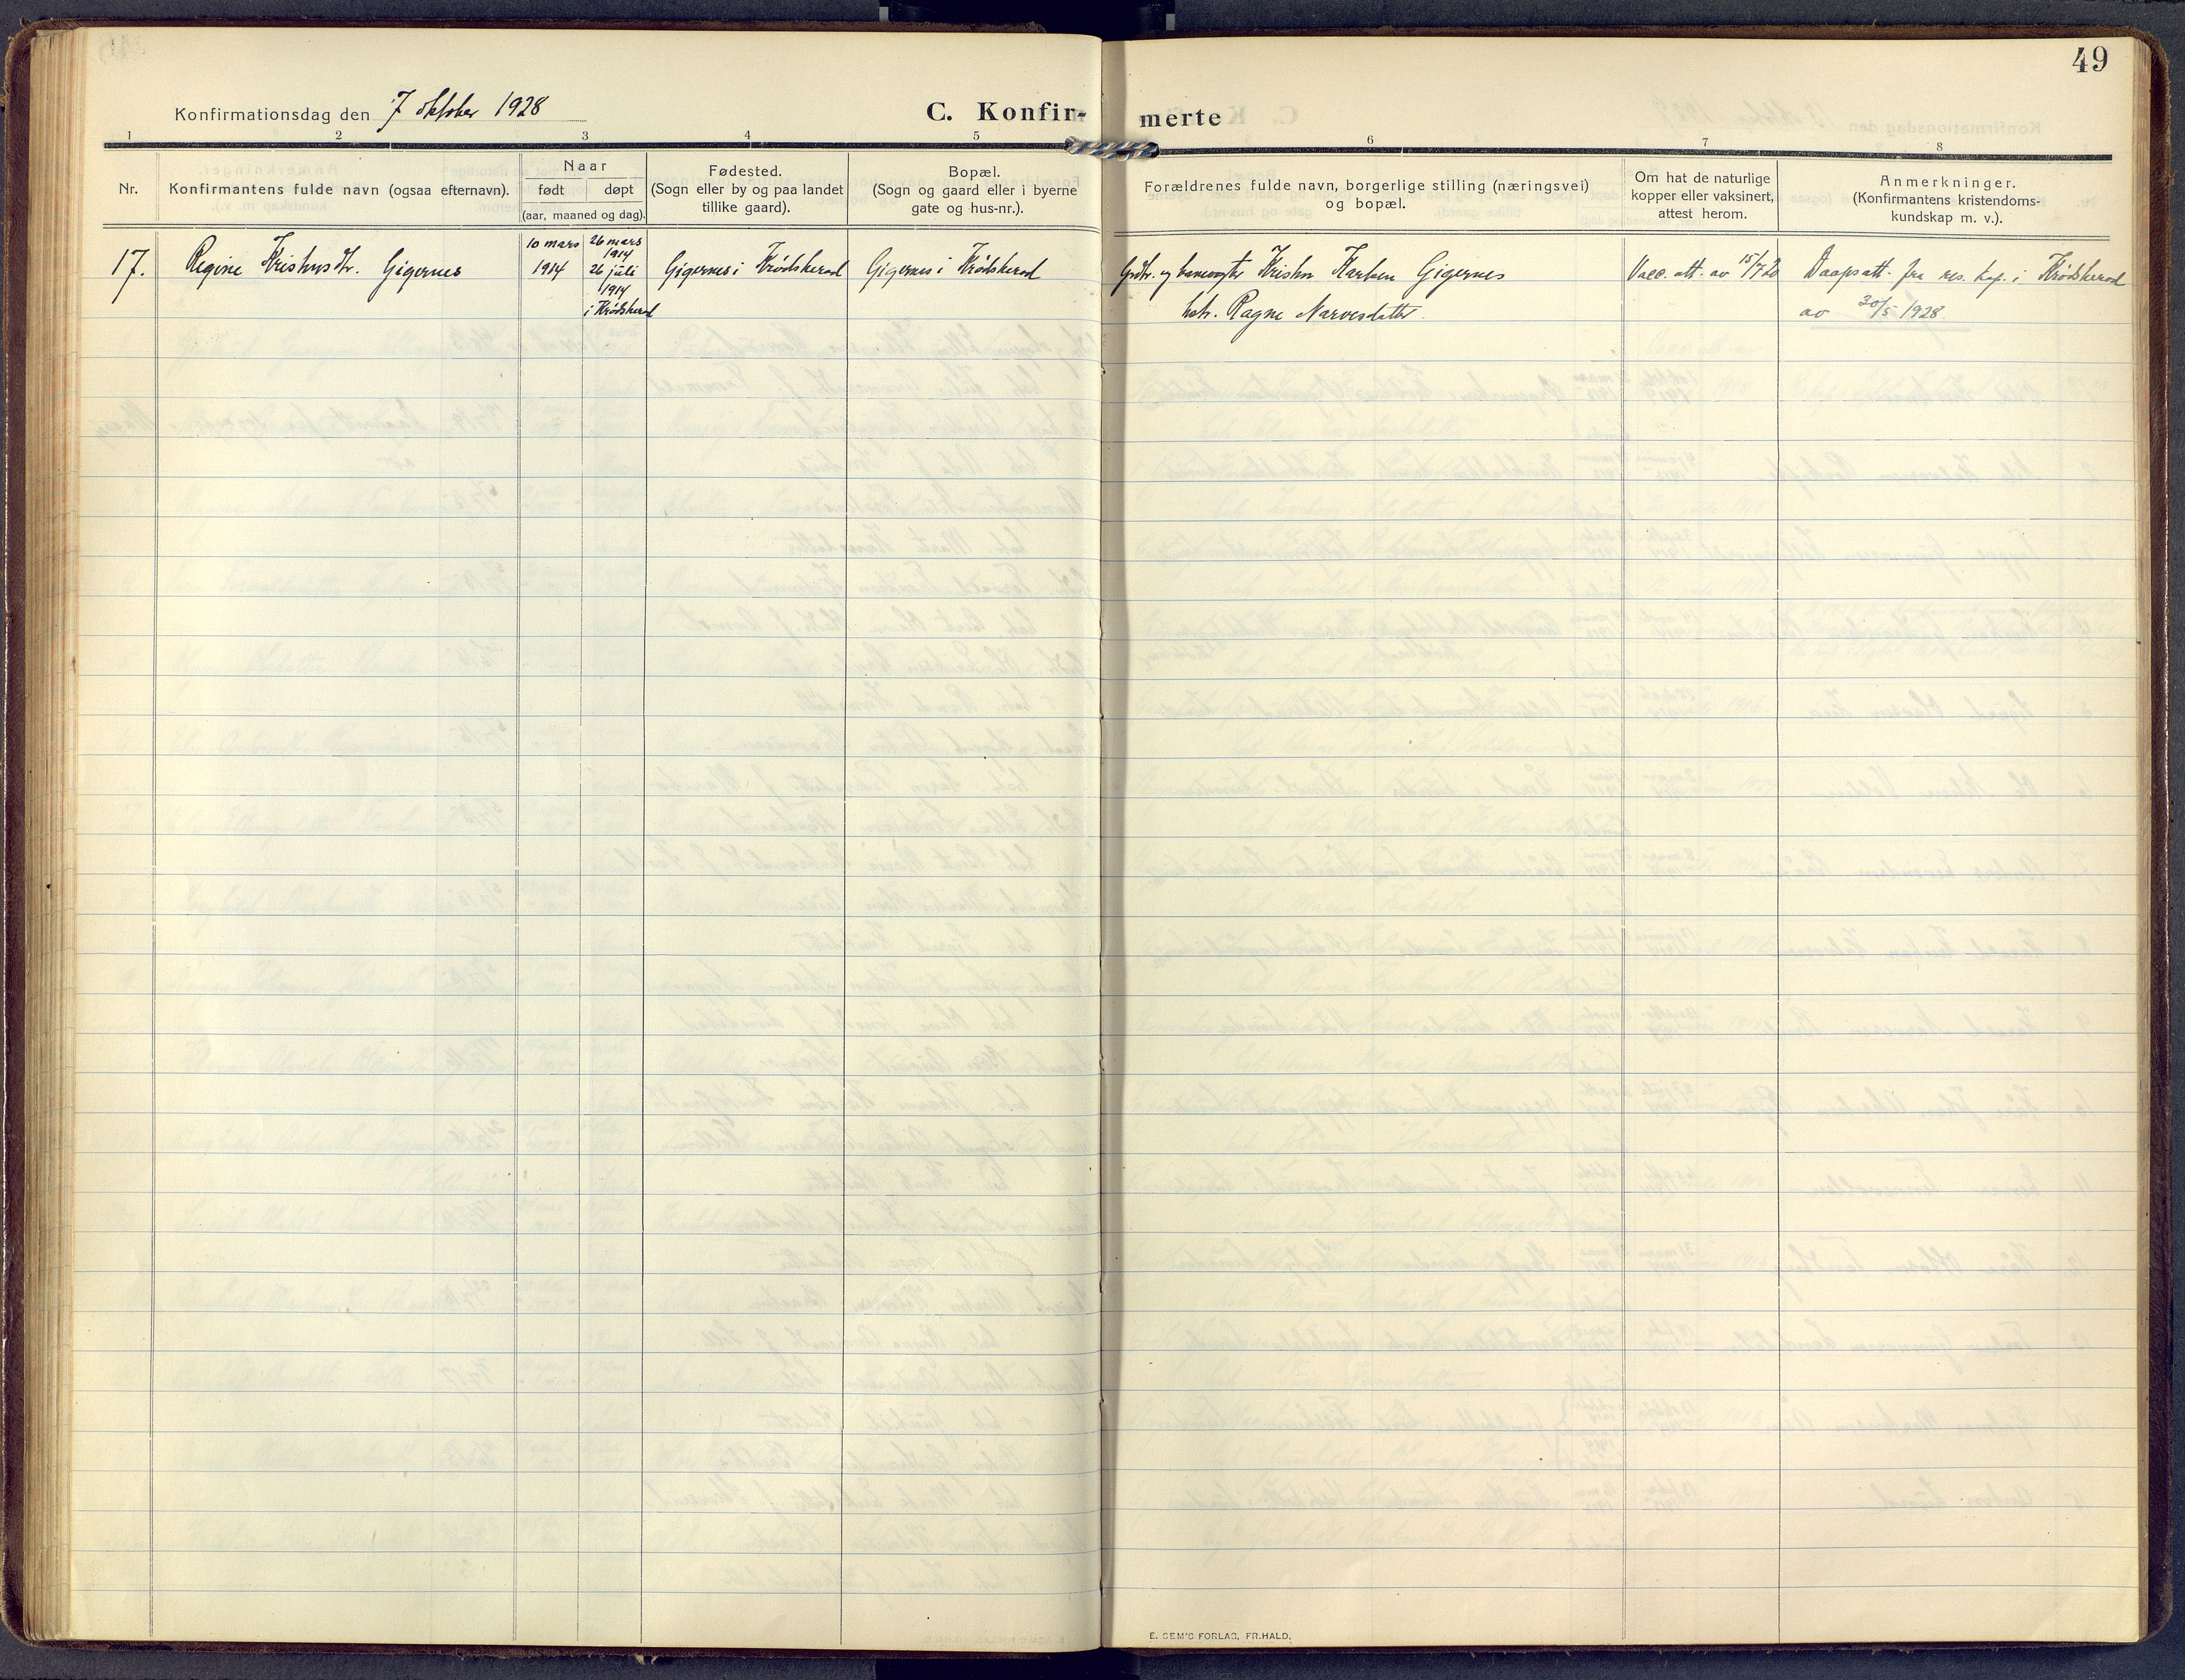 49
Konfirmationsdag den 7 oktober 1928
C. Konfir-
merte
1 2 3 4 5 6 7 8
Nr.
Konfirmantens fulde navn (ogsaa efternavn).
Naar
født døpt
(aar, maaned og dag).
Fødested.
(Sogn eller by og paa landet
tillike gaard).
Bopæl.
(Sogn og gaard eller i byerne
gate og hus-nr.).
Forældrenes fulde navn, borgerlige stilling (næringsvei)
og bopæl.
Om hat de naturlige
kopper eller vaksinert,
attest herom.
Anmerkninger.
(Konfirmantens kristendoms-
kundskap m. v.).
17.
Regine Kristnsdtr. Gigernes
10 mars
1914
26 mars
1914
26 juli
1914
i Krødsherad
Gigernes i Krødsherad
Gigernes i Krødsherad
Gbr. og banevogter Kristen Karlsen Gigernes
hstr. Ragne Narvesdatter
Vacc. att. av 15/7 20
Daapsatt. fra res. kap. i Krødsherad
av 30/5 1928.
E. SEM'S FORLAG, FR.HALD.